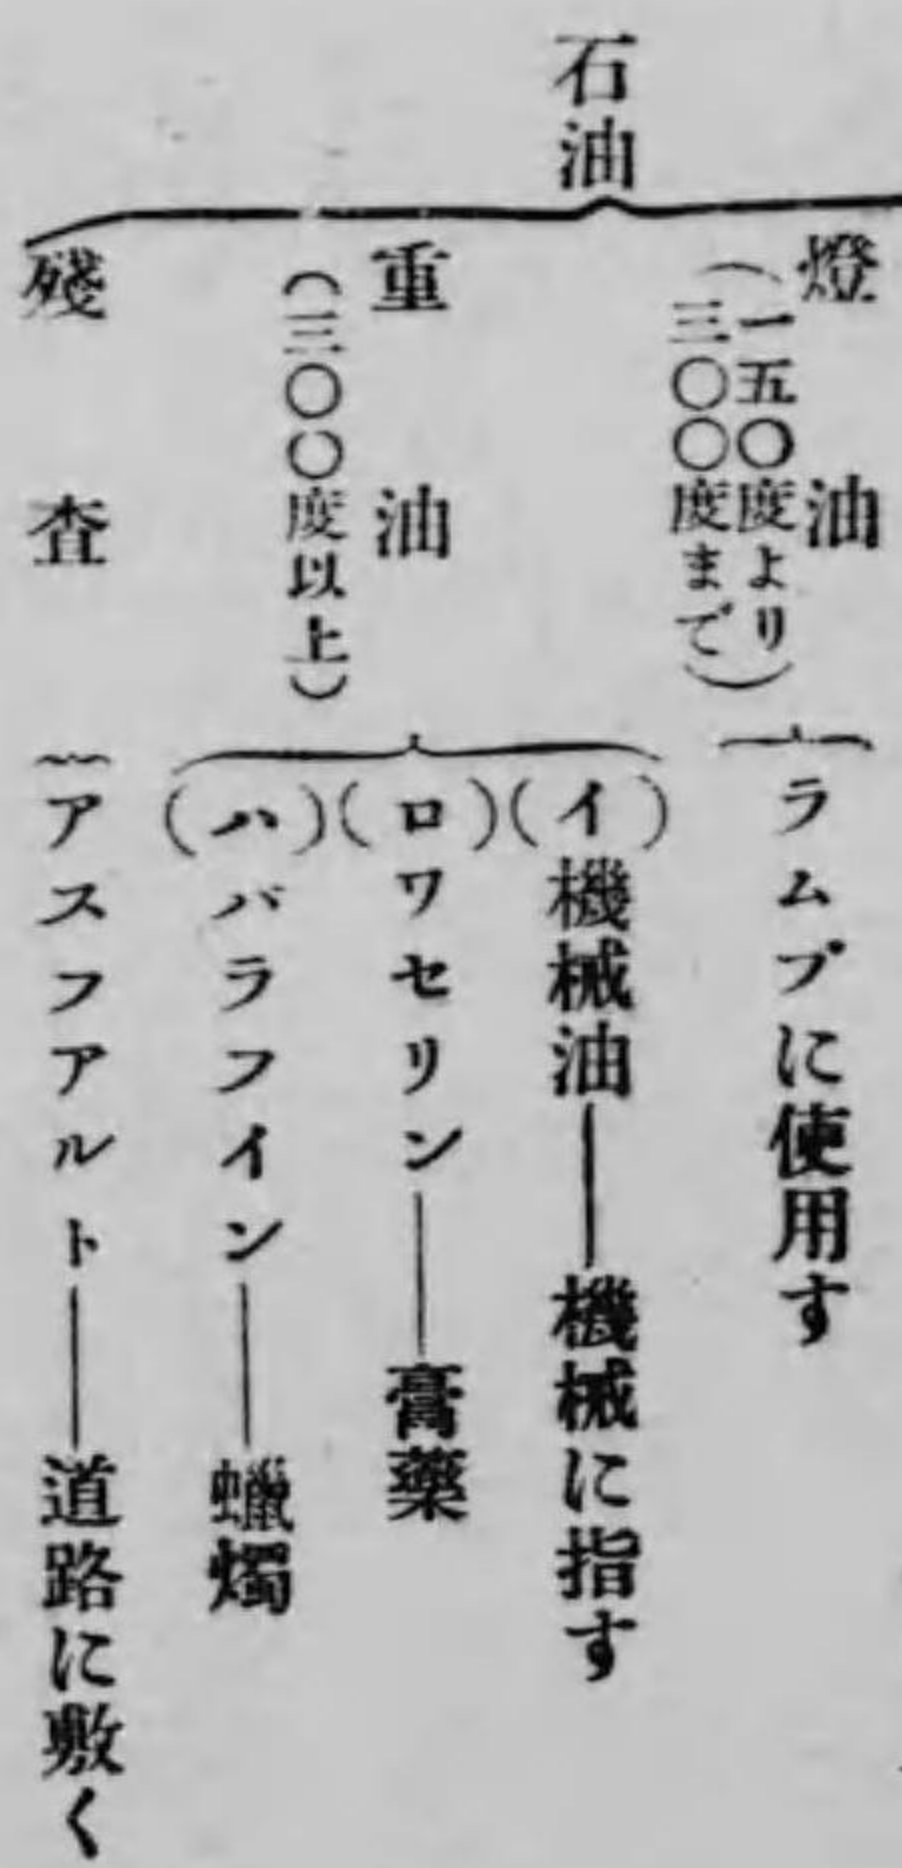 石油
燈油
(一五〇度より
三〇〇度まで)
ラムプに使用す
重油
(三〇〇度以上)
(イ)機械油――機械に指す
(ロ)ワセリン――膏藥
(ハ)バラフイン――蠟燭
殘査
アスフアルト――道路に敷く